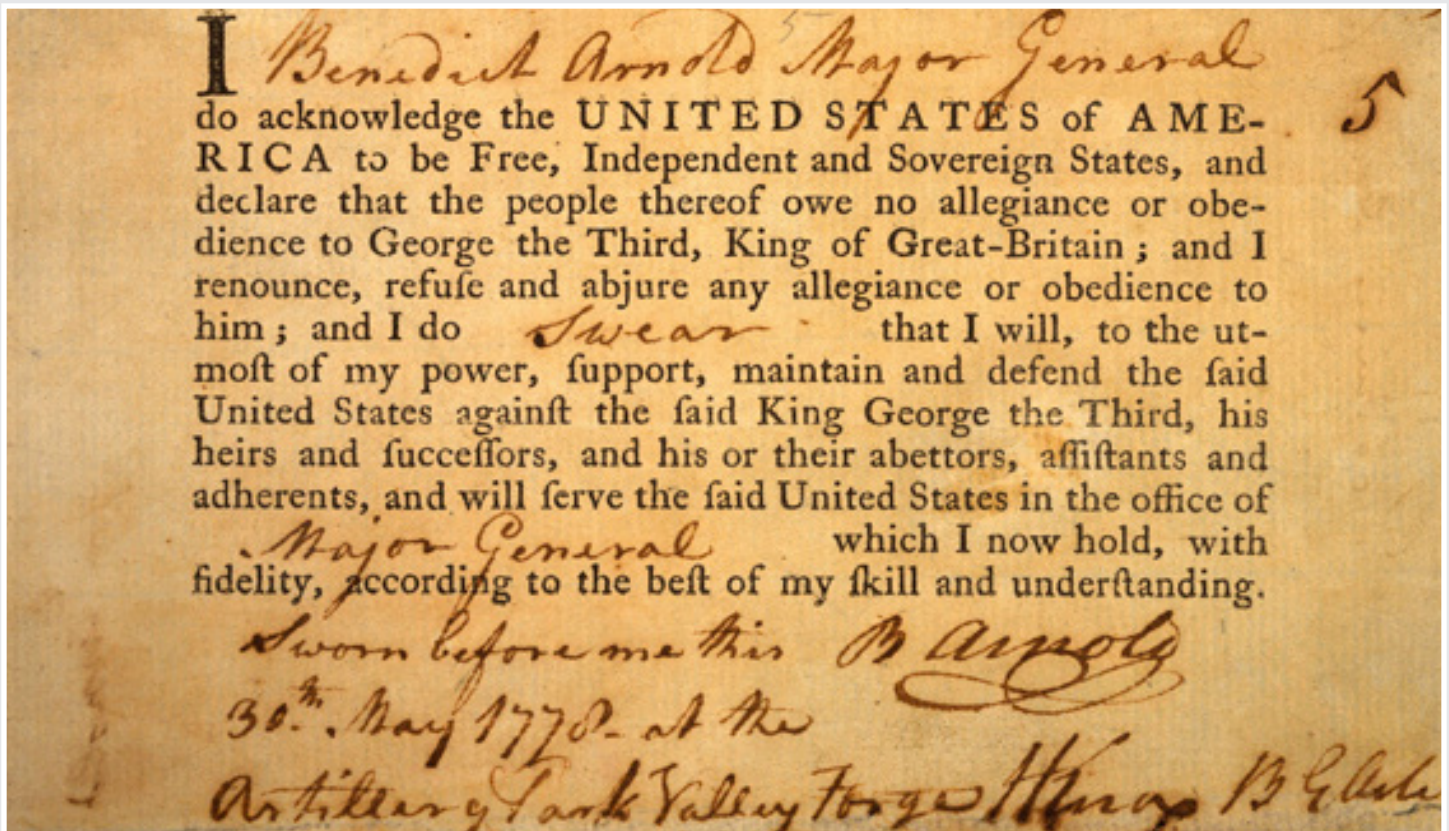 I Benedict Arnold Major General
5
do acknowledge the UNITED STATES of AME-
RICA to be Free, Independent and Sovereign States, and
declare that the people thereof owe no allegiance or obe-
dience to George the Third, King of Great-Britain ; and I
renounce, refuſe and abjure any allegiance or obedience to
him ; and I do Swear that I will, to the ut-
moſt of my power, ſupport, maintain and defend the ſaid
United States againſt the ſaid King George the Third, his
heirs and ſucceſſors, and his or their abettors, aſſiſtants and
adherents, and will ſerve the ſaid United States in the office of
Major General which I now hold, with
fidelity, according to the beſt of my ſkill and underſtanding.
Sworn before me this B Arnold
30th. May 1778 - at the
Artillery Park Valley Forge HKnox B G Arte